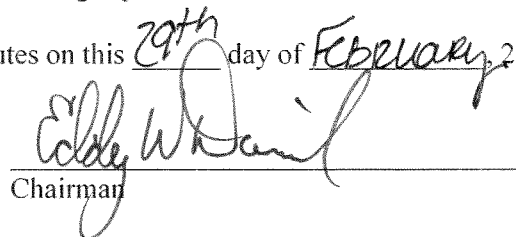 utes on this 29th day of February, 2
Eddy W Daniel
Chairman